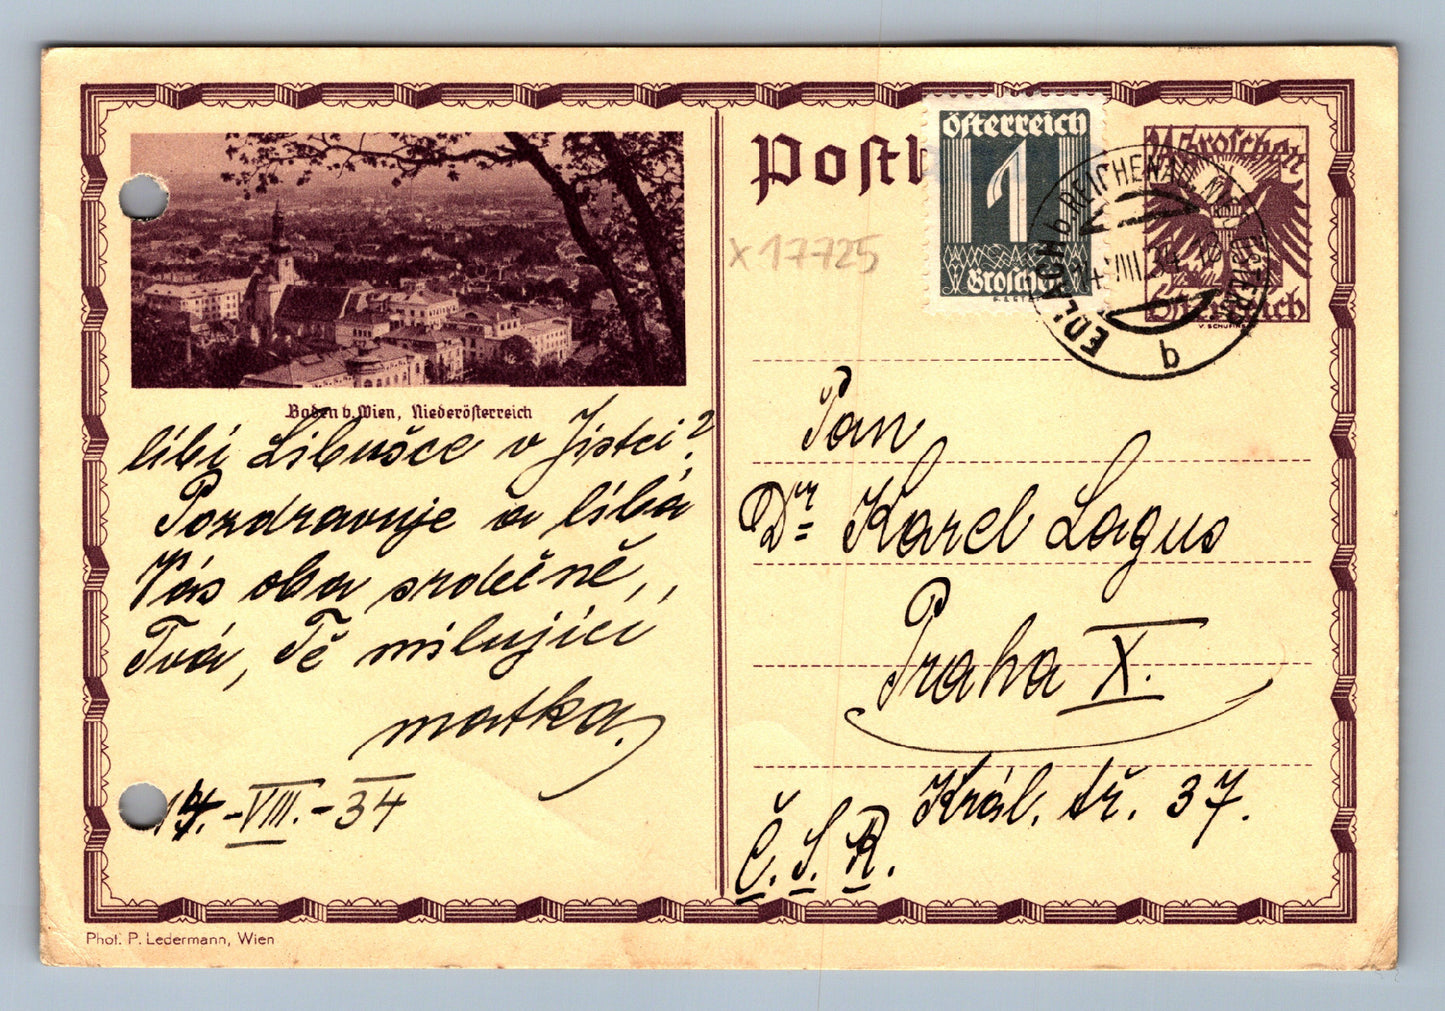 Baden b. Wien, Niederösterreich
líbí Libušce v Jistci?
Pozdravuje a líbá
Vás oba srdečně,
Tvá, Tě milující
matka.
14.-VIII.-34
Phot. P. Ledermann, Wien
Postk
x 17725
Österreich
1
Groschen
24 Groschen
Österreich
EDLACH b. REICHENAU, N.Ö.
14.VIII.34
b
Pan
Dr. Karel Lagus
Praha X.
Král. tř. 37.
Č.S.R.